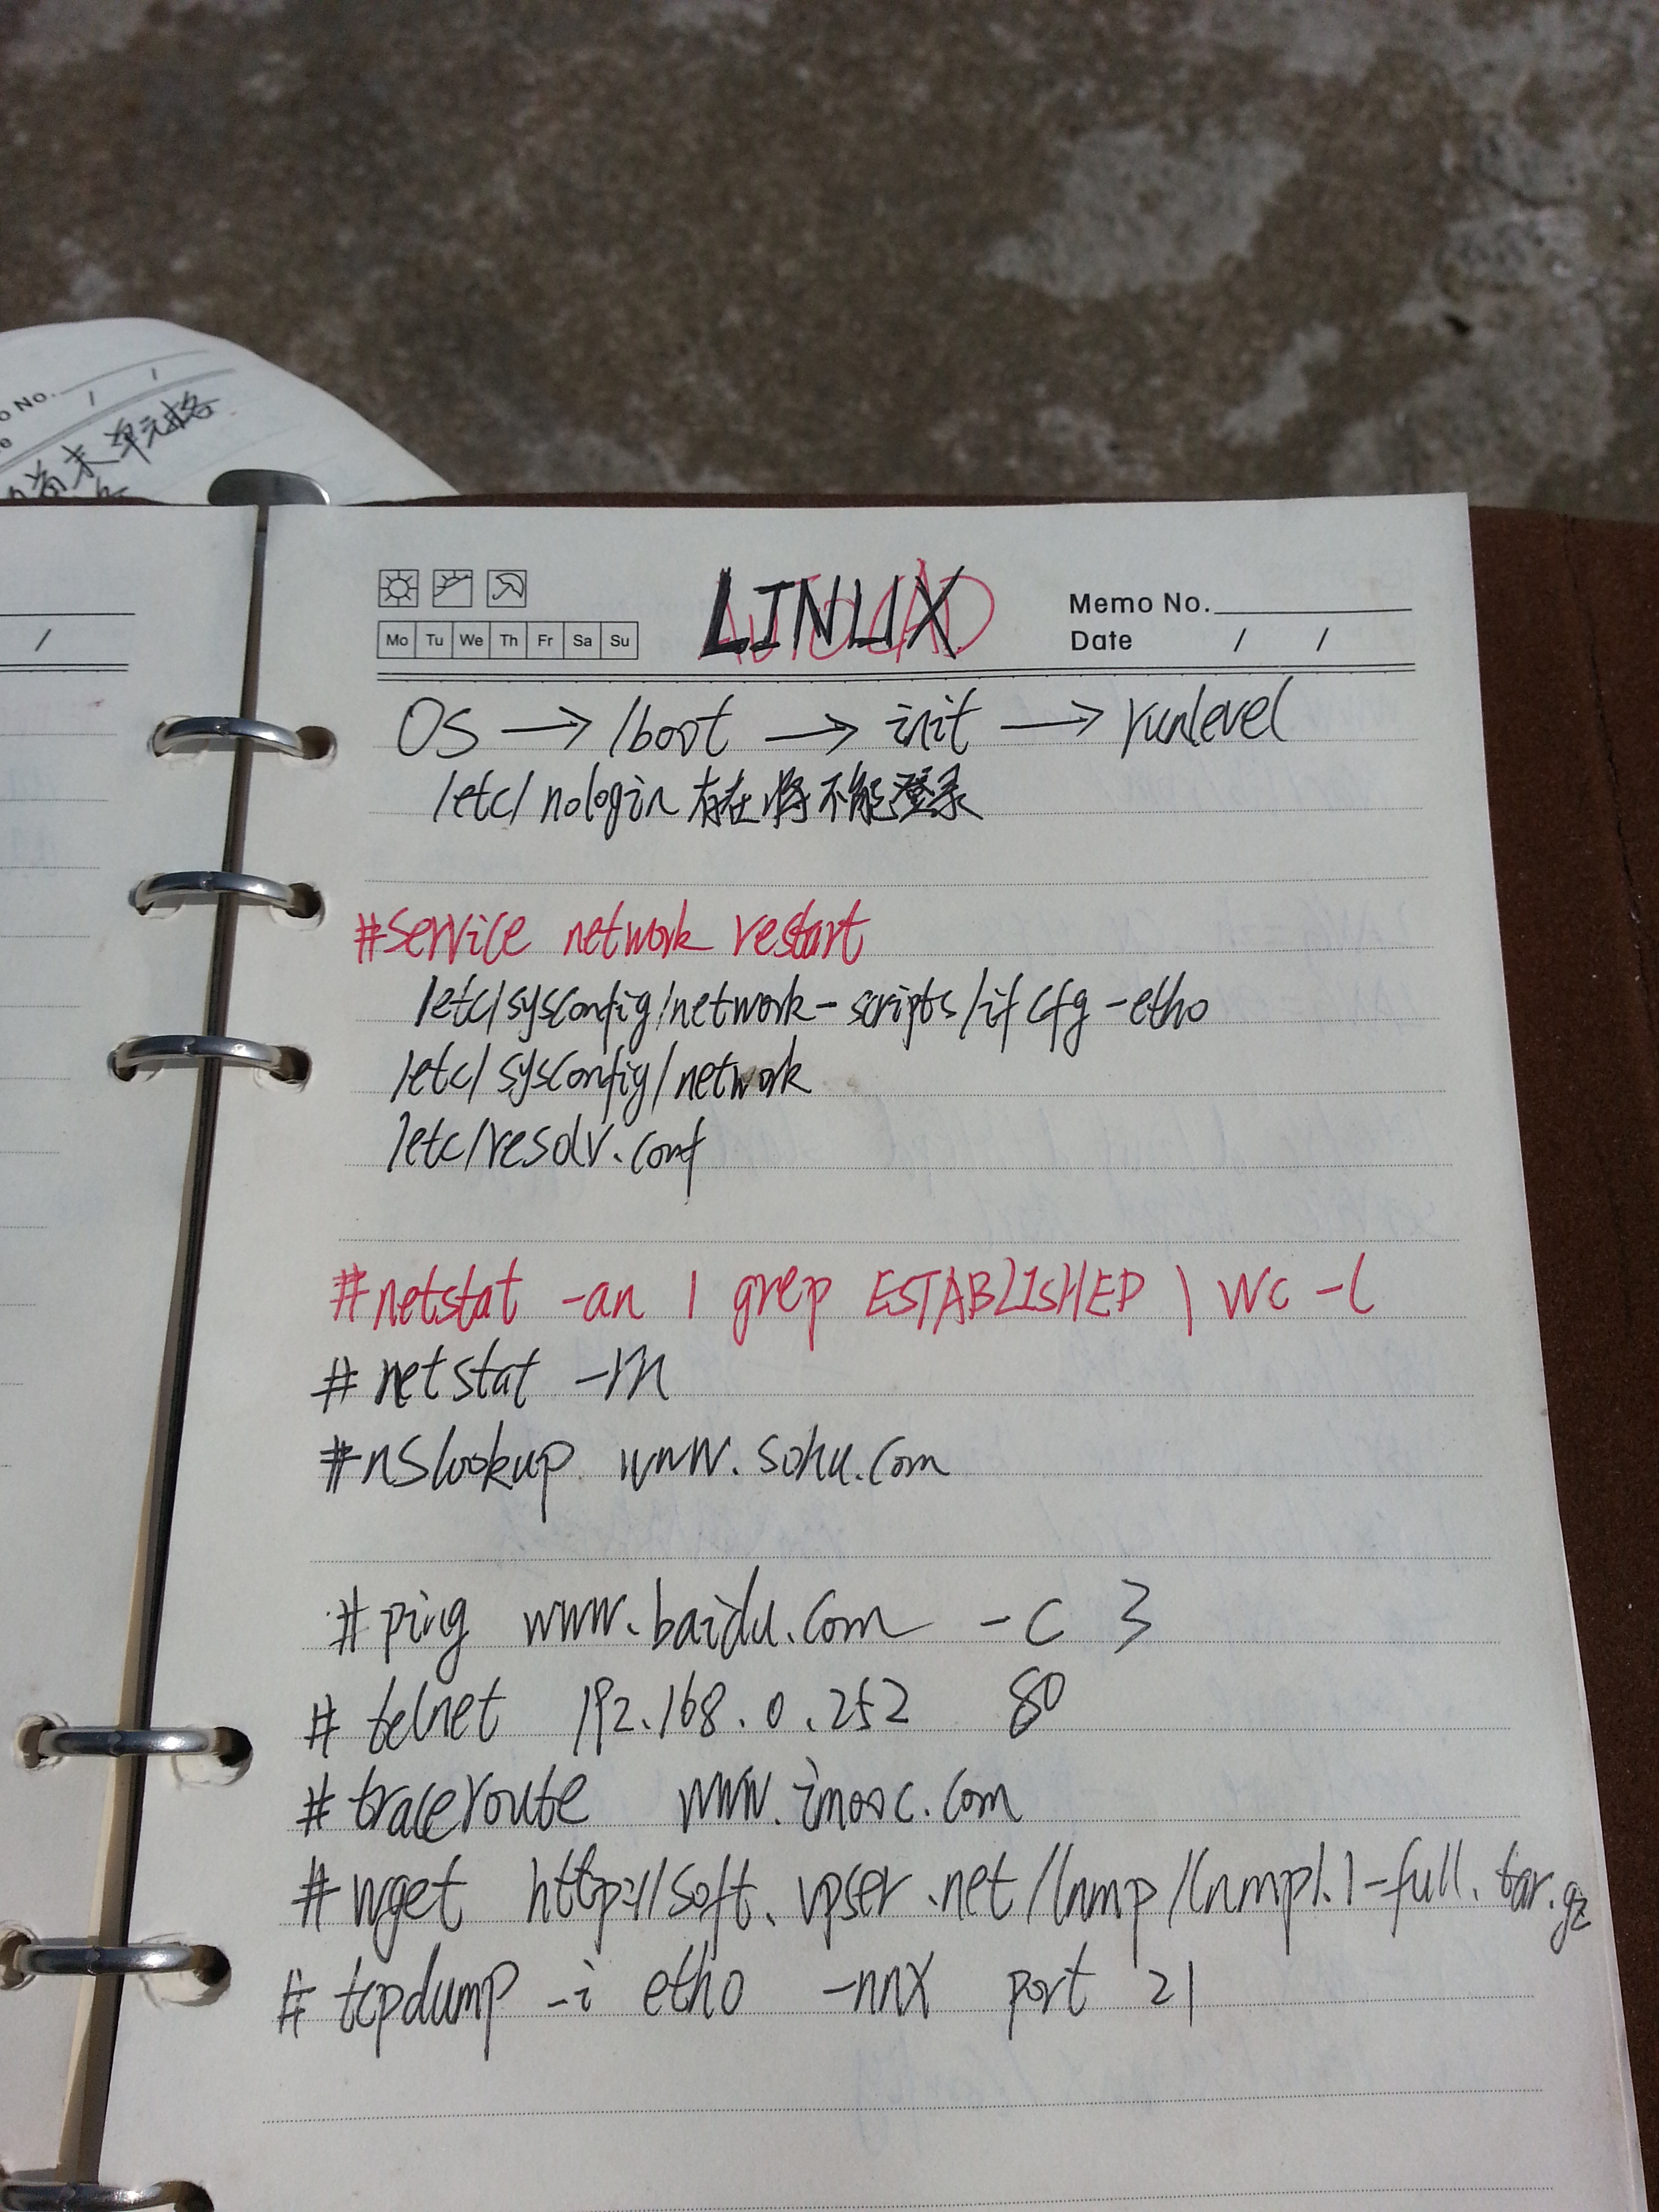 o No.
/ /
单元格
/
LINUX
AUTOCAD
Memo No.
Mo Tu We Th Fr Sa Su
Date / /
OS → /boot → init → runlevel
/etc/nologin 存在将不能登录
#service network restart
/etc/sysconfig/network-scripts/ifcfg-eth0
/etc/sysconfig/network
/etc/resolv.conf
#netstat -an | grep ESTABLISHED | wc -l
# netstat -rn
#nslookup www.sohu.com
#ping www.baidu.com -c 3
# telnet 192.168.0.252 80
# traceroute www.imooc.com
#wget http://soft.vpser.net/lnmp/lnmp1.1-full.tar.gz
# tcpdump -i eth0 -nnX port 21